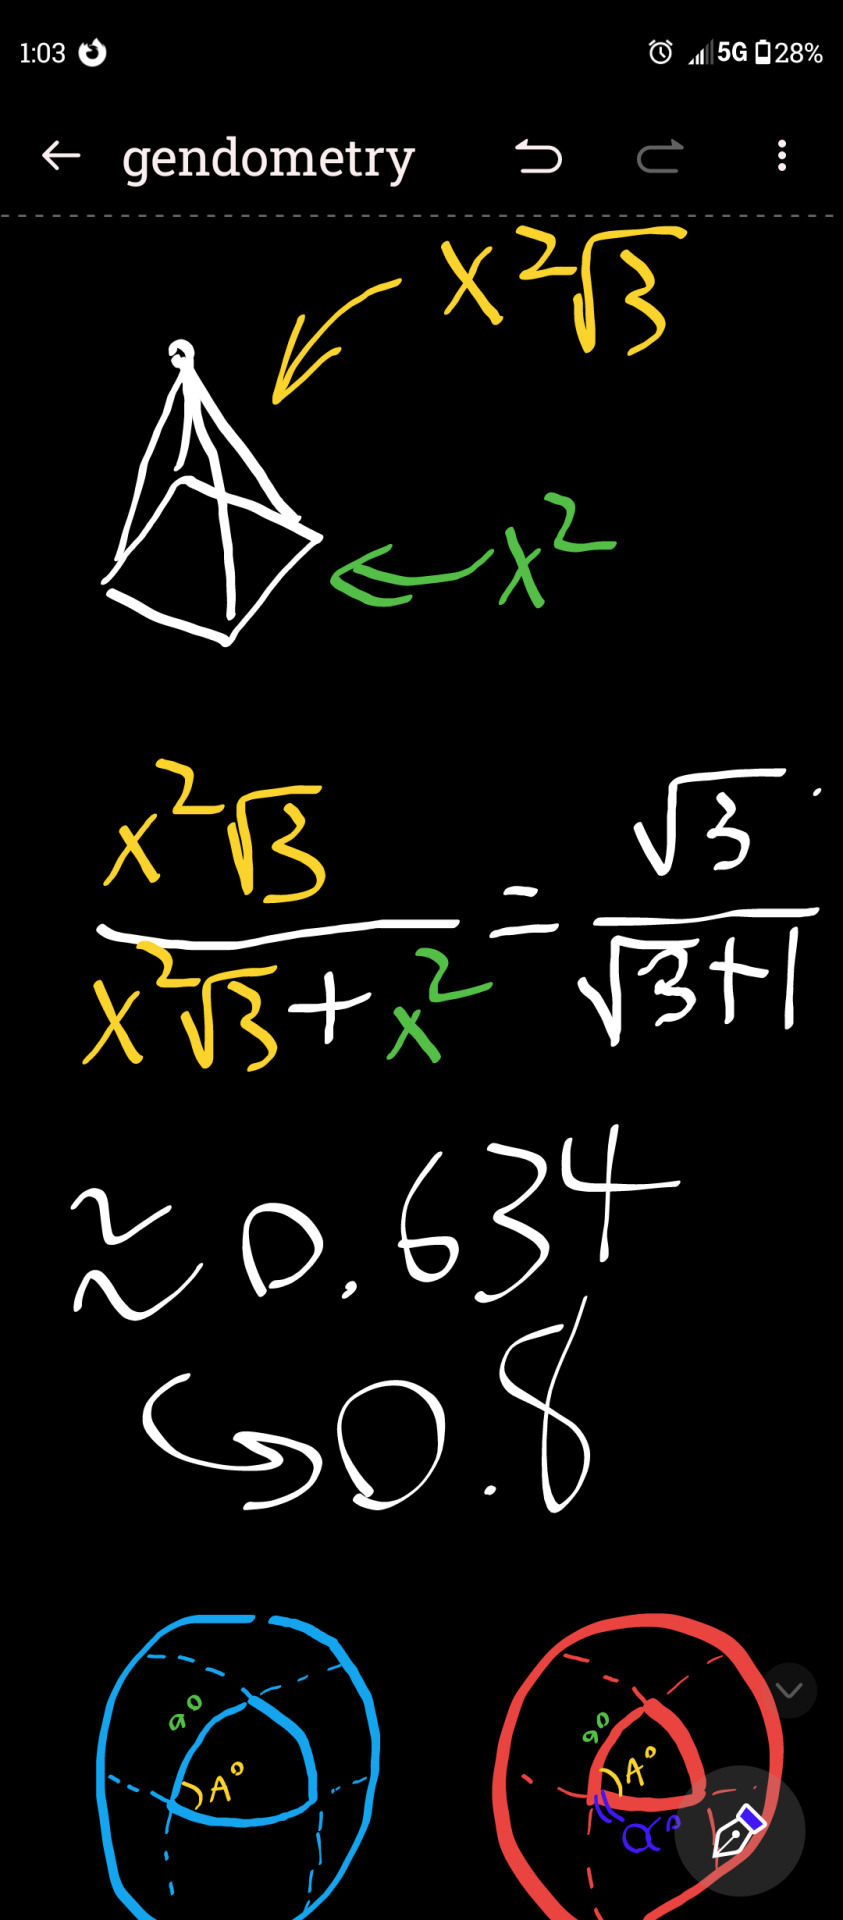 1:03 5G 28%
gendometry
x²√3
x²
x²√3 / x²√3+x² = √3 / √3+1
≈ 0.634
↪ 0.8
a° a°
A° A°
α°